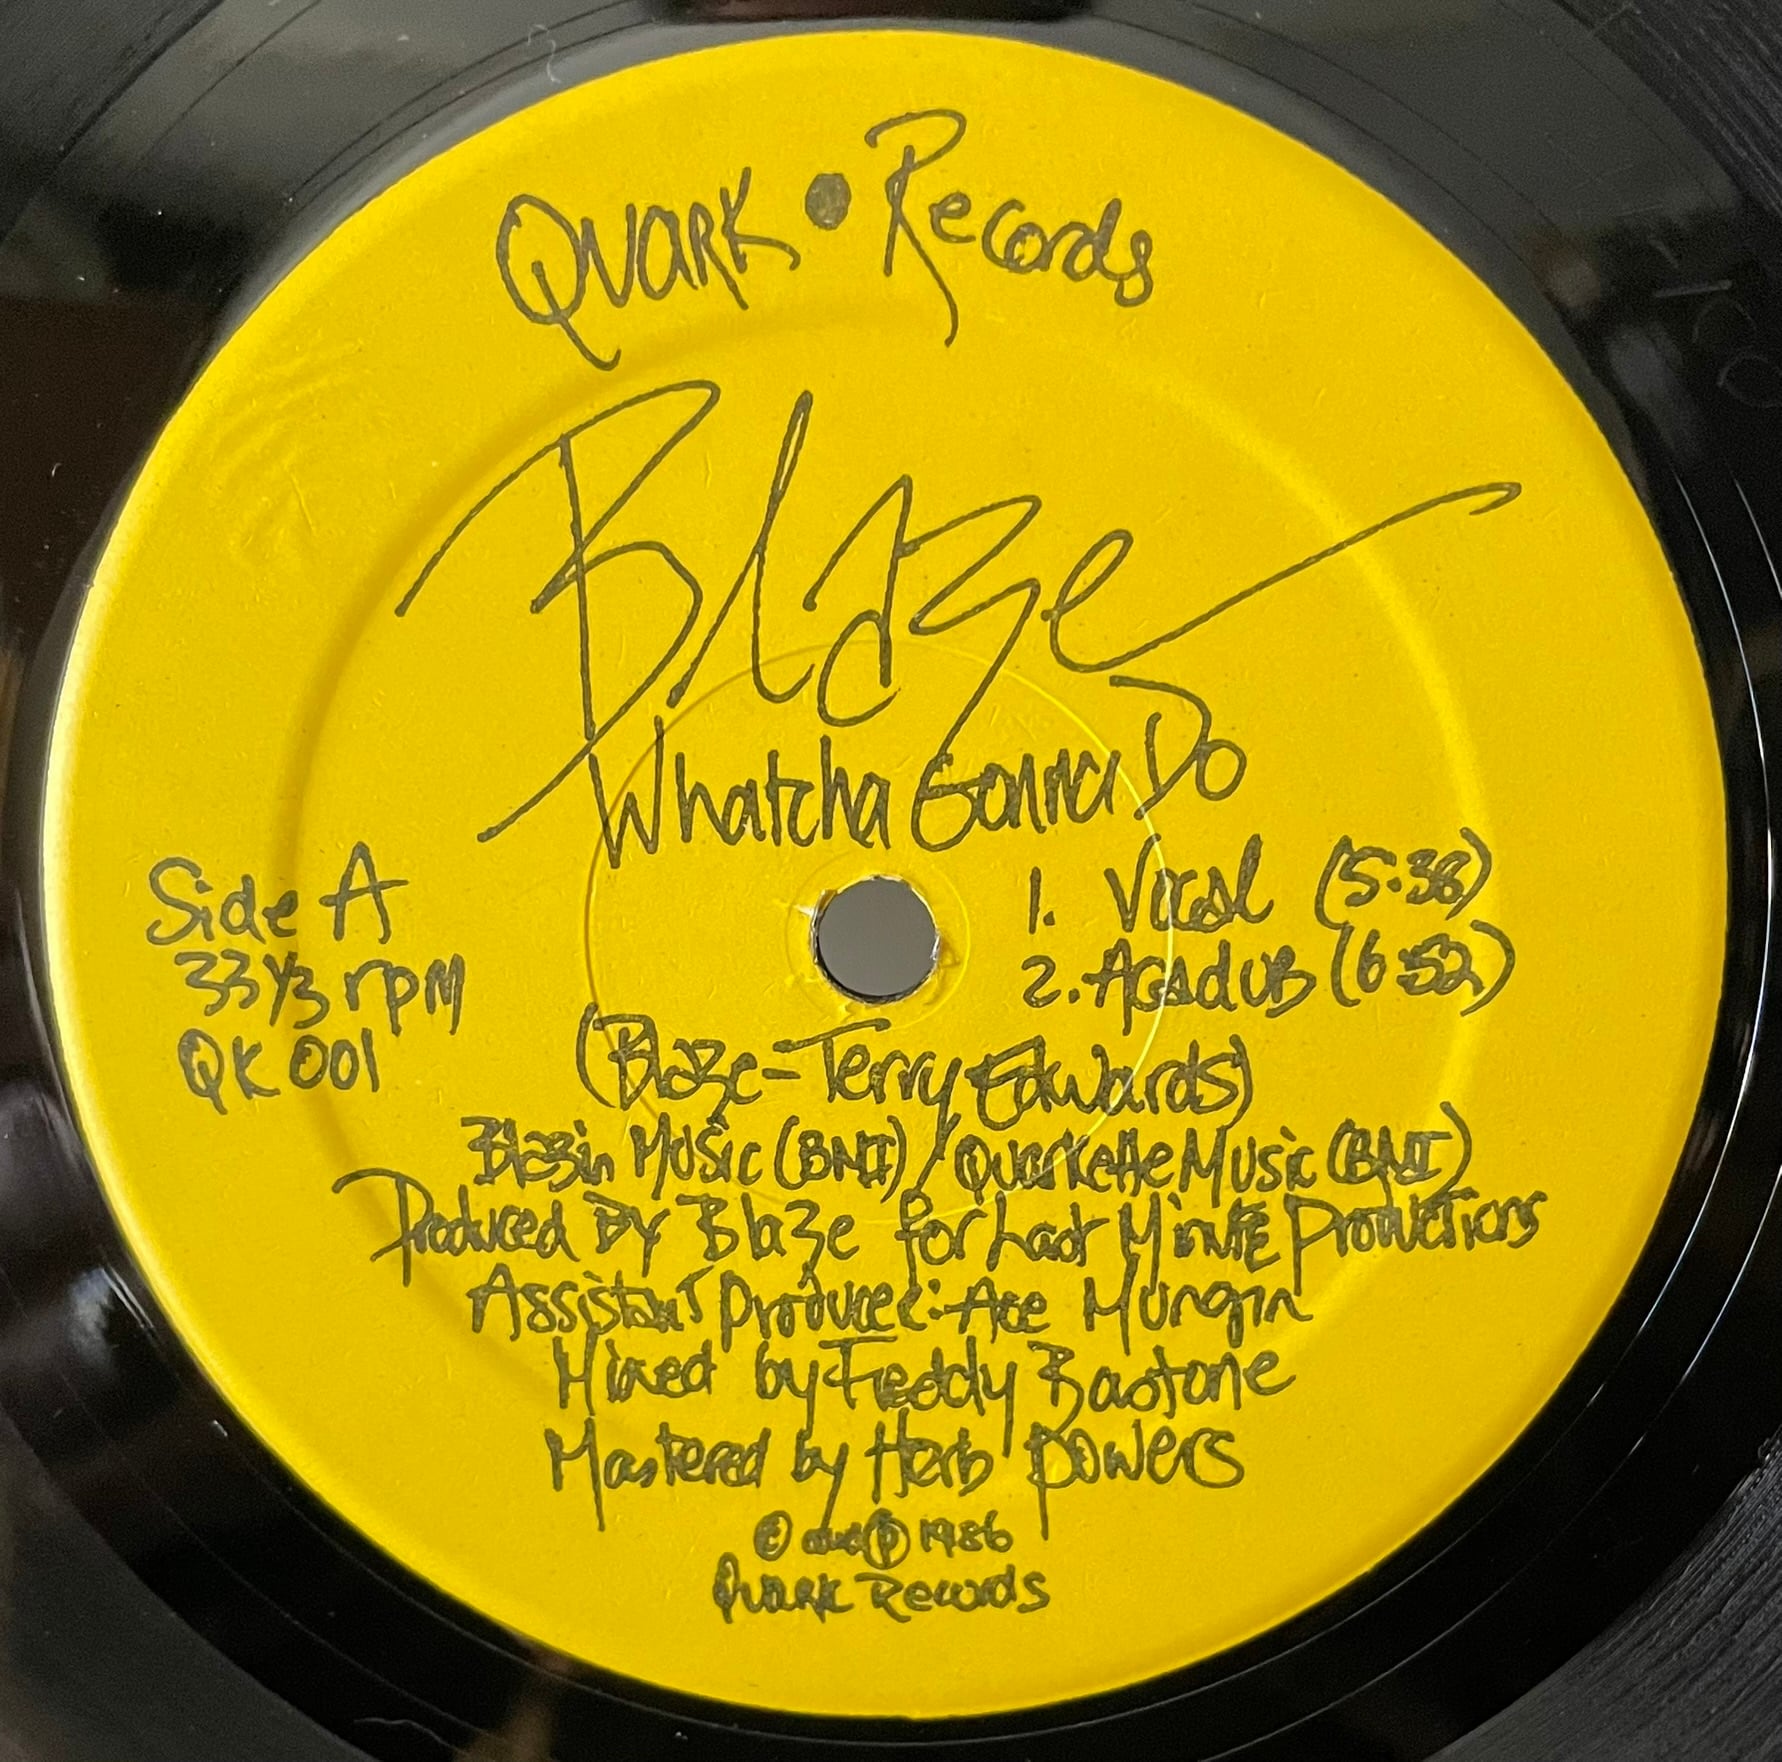 Quark • Records
Blaze
Whatcha Gonna Do
Side A
33 1/3 rpm
QK 001
1. Vocal (5:38)
2. Acadub (6:52)
(Blaze-Terry Edwards)
Blazin Music (BMI) / Quarkette Music (BMI)
Produced By Blaze for Last Minute Productions
Assistant Producer: Ace Mungin
Mixed by Freddy Bastone
Mastered by Herb Powers
© and ℗ 1986
Quark Records